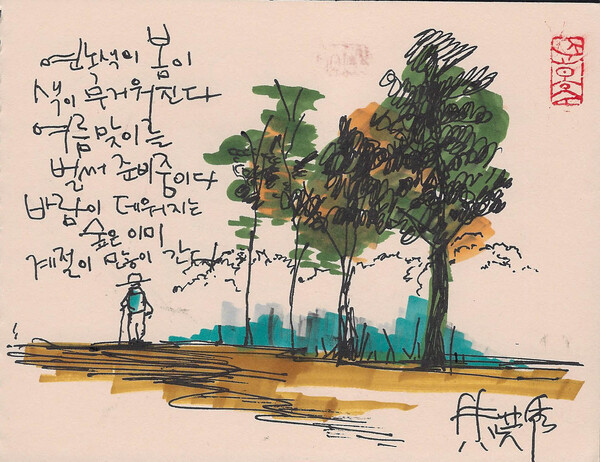 연녹색이 봄이
색이 무거워진다
여름맞이를
벌써 준비중이다
바람이 데워지는
숲은 이미
계절이 간다